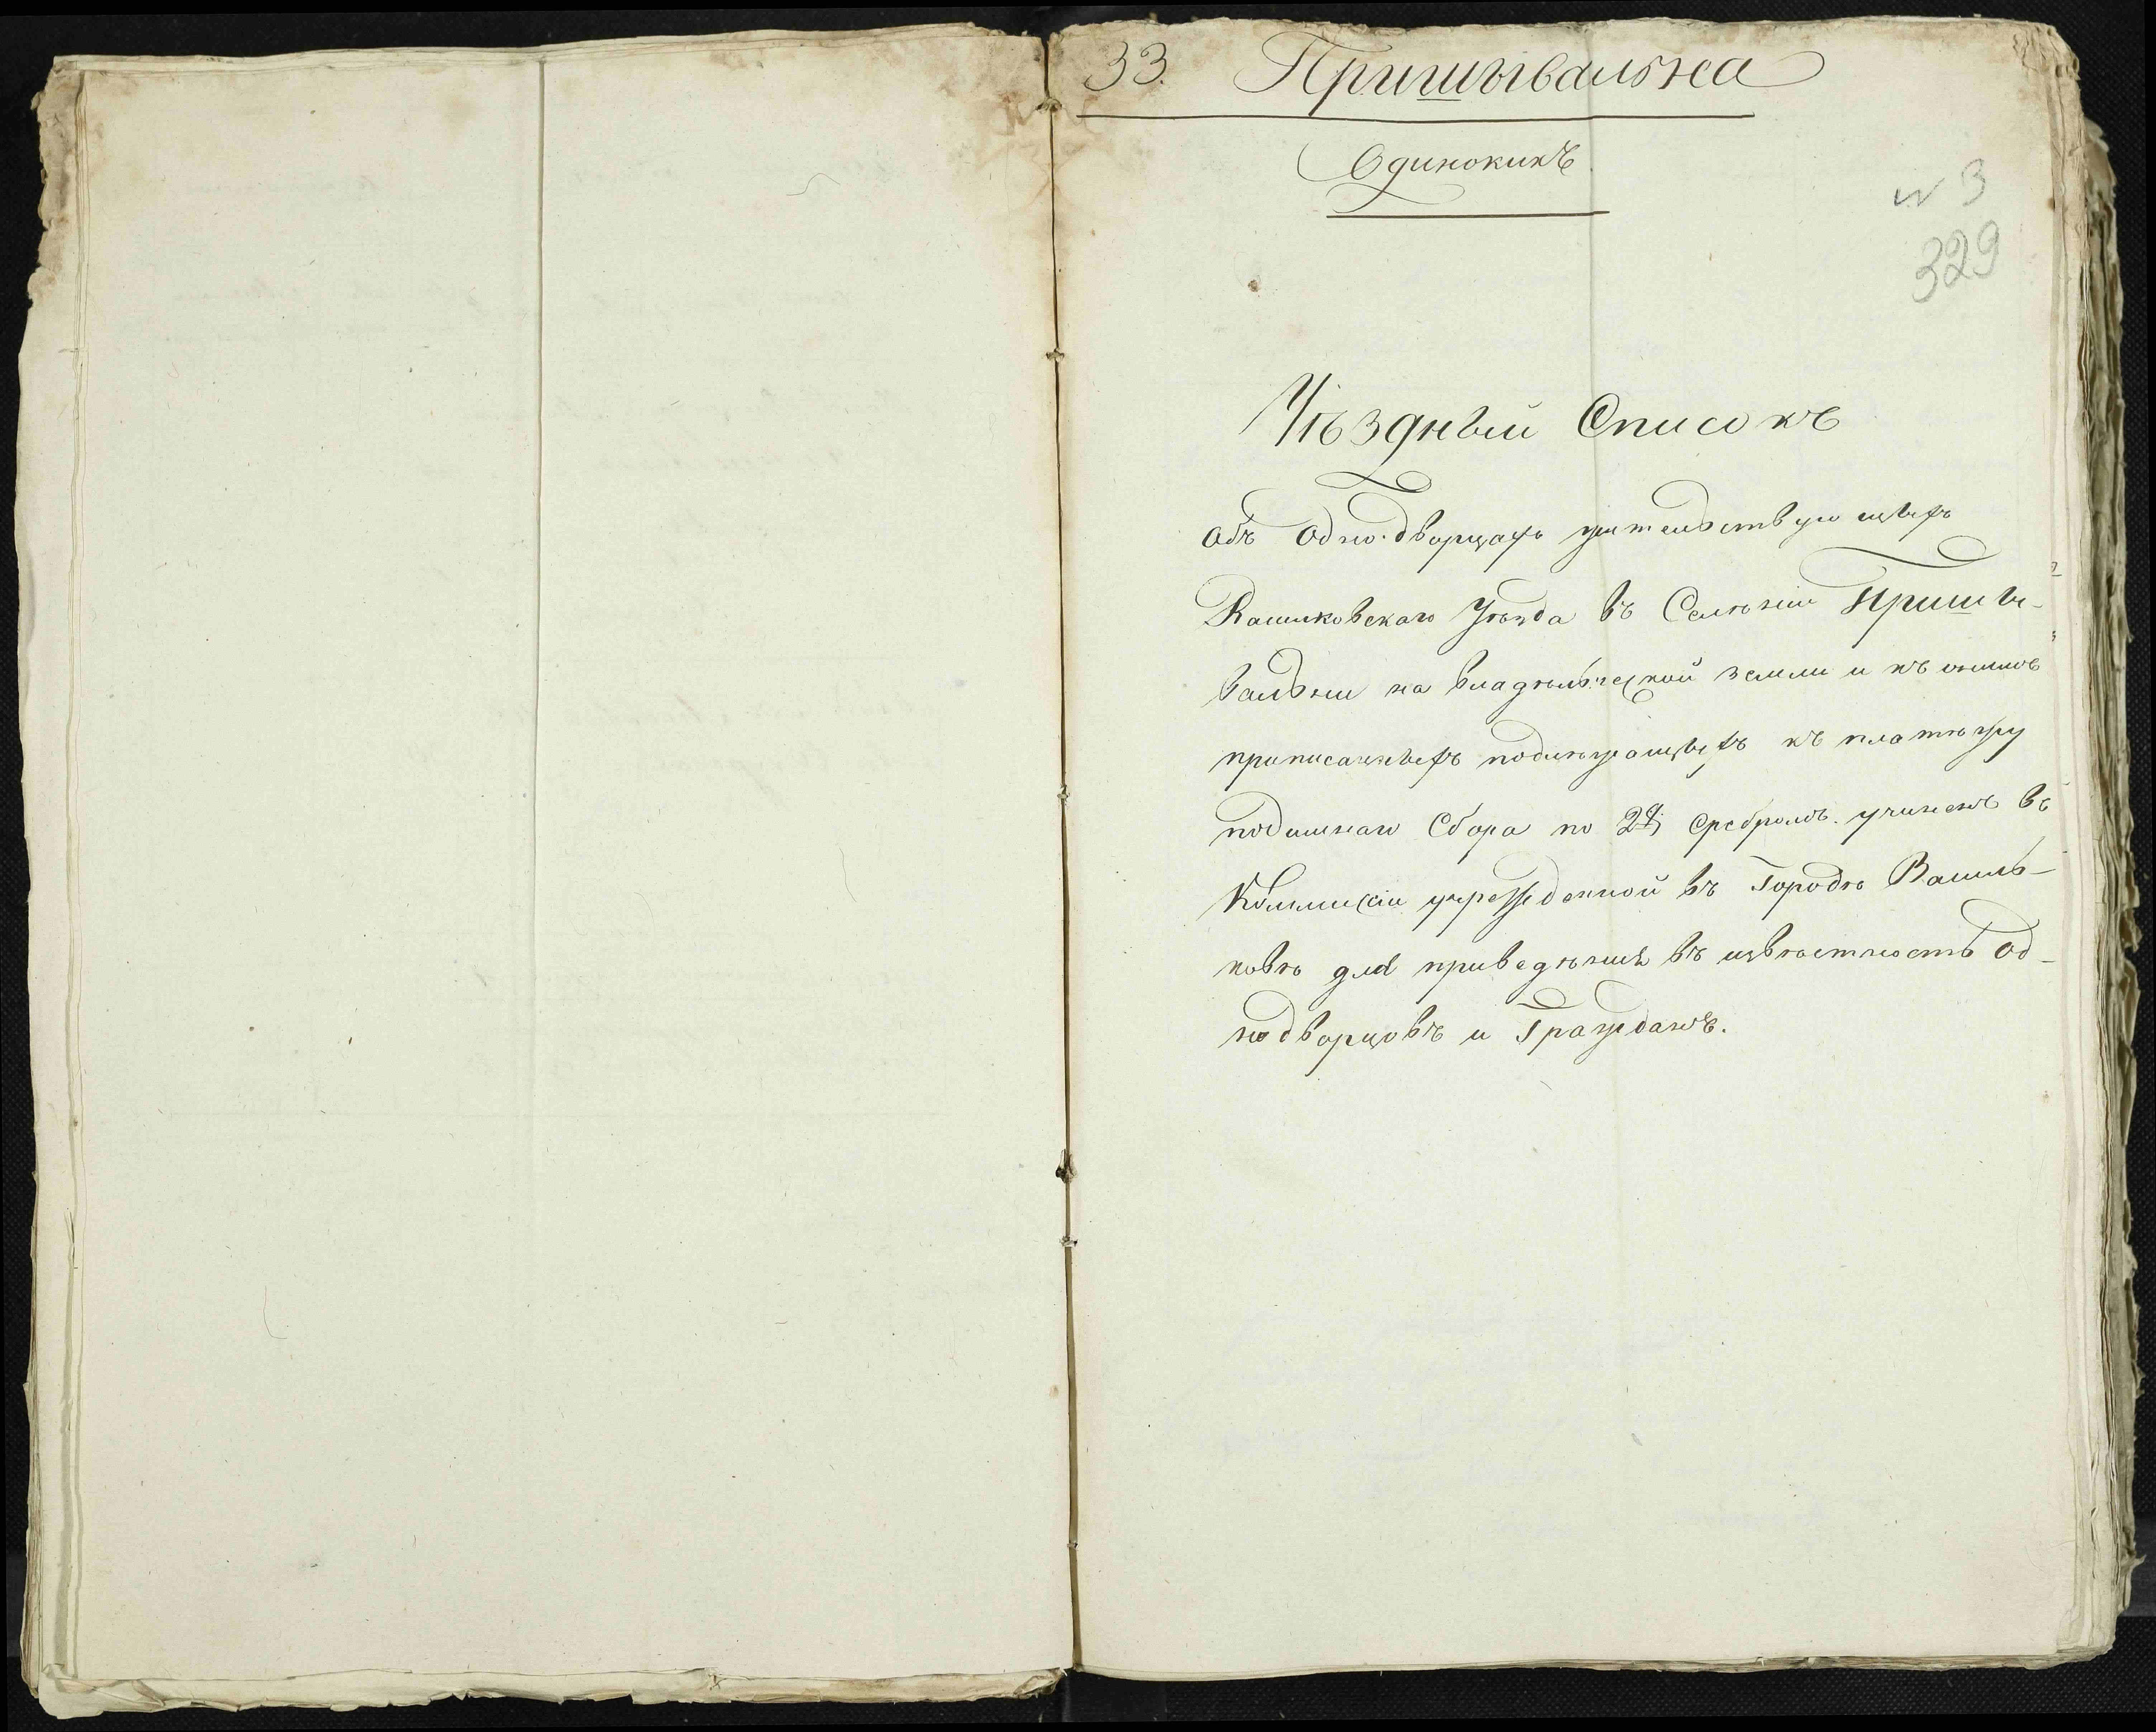 33. Пришывальна
Одинокихъ
N 3
329
Уѣздный Списокъ
объ одно-дворцахъ жительствующыхъ
Васильковскаго Уѣзда въ Селѣніи Пришы-
вальни на владѣльческой земли и къ онымъ
приписанныхъ подлѣжащыхъ къ платѣжу
подымнаго Сбора по 2 р. сребромъ. учиненъ въ
Коммисіи учрежденной въ Городѣ Василь-
ковѣ для приведѣнія въ извѣстность Од-
нодворцовъ и Гражданъ.